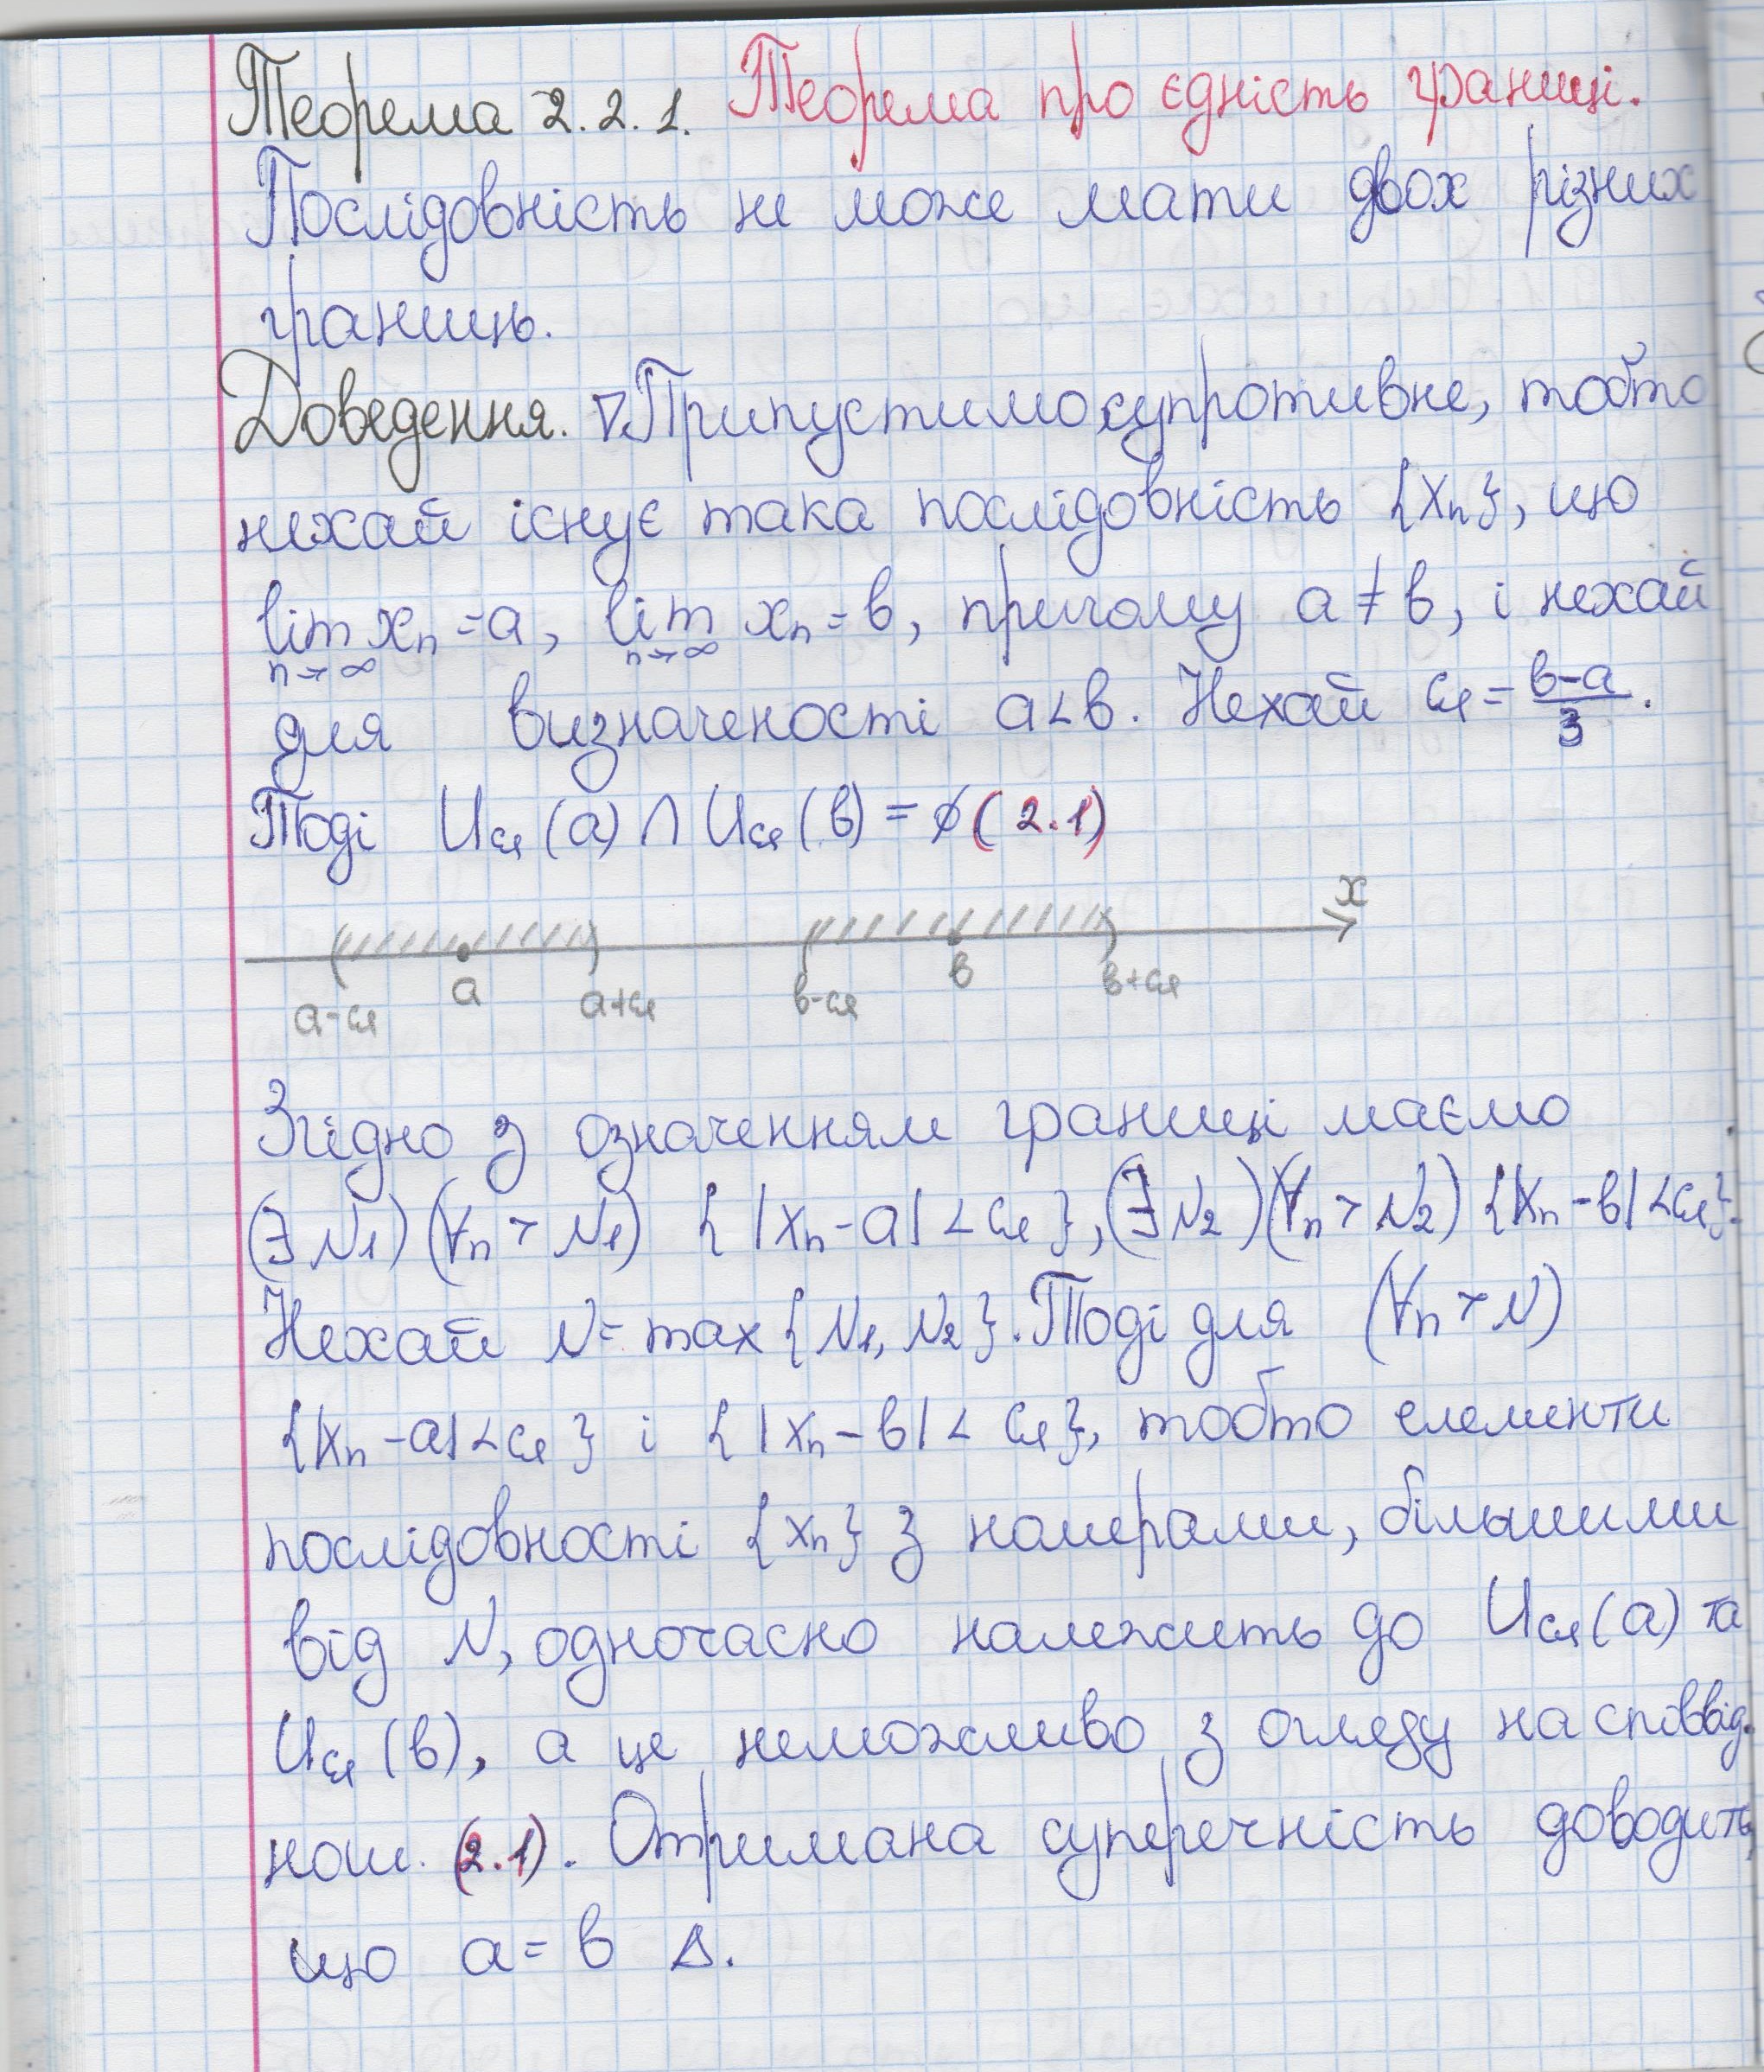 Теорема 2.2.1. Теорема про єдність границі.
Послідовність не може мати двох різних
границь.
Доведення. ∇.Припустимо супротивне, тобто
нехай існує така послідовність {xₙ}, що
lim xₙ = a, lim xₙ = b, причому a ≠ b, і нехай
n→∞ n→∞
для визначеності a < b. Нехай ε₁ = (b-a)/3.
Тоді Uε₁(a) ∩ Uε₁(b) = ∅ (2.1)
x
a-ε₁ a a+ε₁ b-ε₁ b b+ε₁
Згідно з означенням границі маємо
(∃ N₁) (∀n > N₁) { |xₙ - a| < ε₁ }, (∃ N₂) (∀n > N₂) {|xₙ - b| < ε₁}.
Нехай N = max {N₁, N₂}. Тоді для (∀n > N)
{|xₙ - a| < ε₁} і {|xₙ - b| < ε₁}, тобто елементи
послідовності {xₙ} з номерами, більшими
від N, одночасно належить до Uε₁(a) та
Uε₁(b), а це неможливо з огляду на співвід.
нош. (2.1). Отримана суперечність доводить,
що a = b Δ.